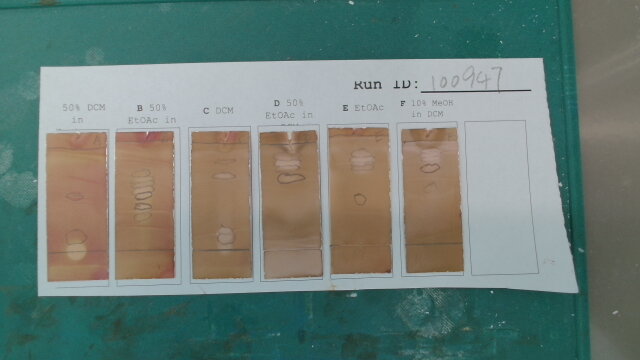 Run ID: 100947
50% DCM in
B 50% EtOAc in
C DCM
D 50% EtOAc in
E EtOAc
F 10% MeOH in DCM